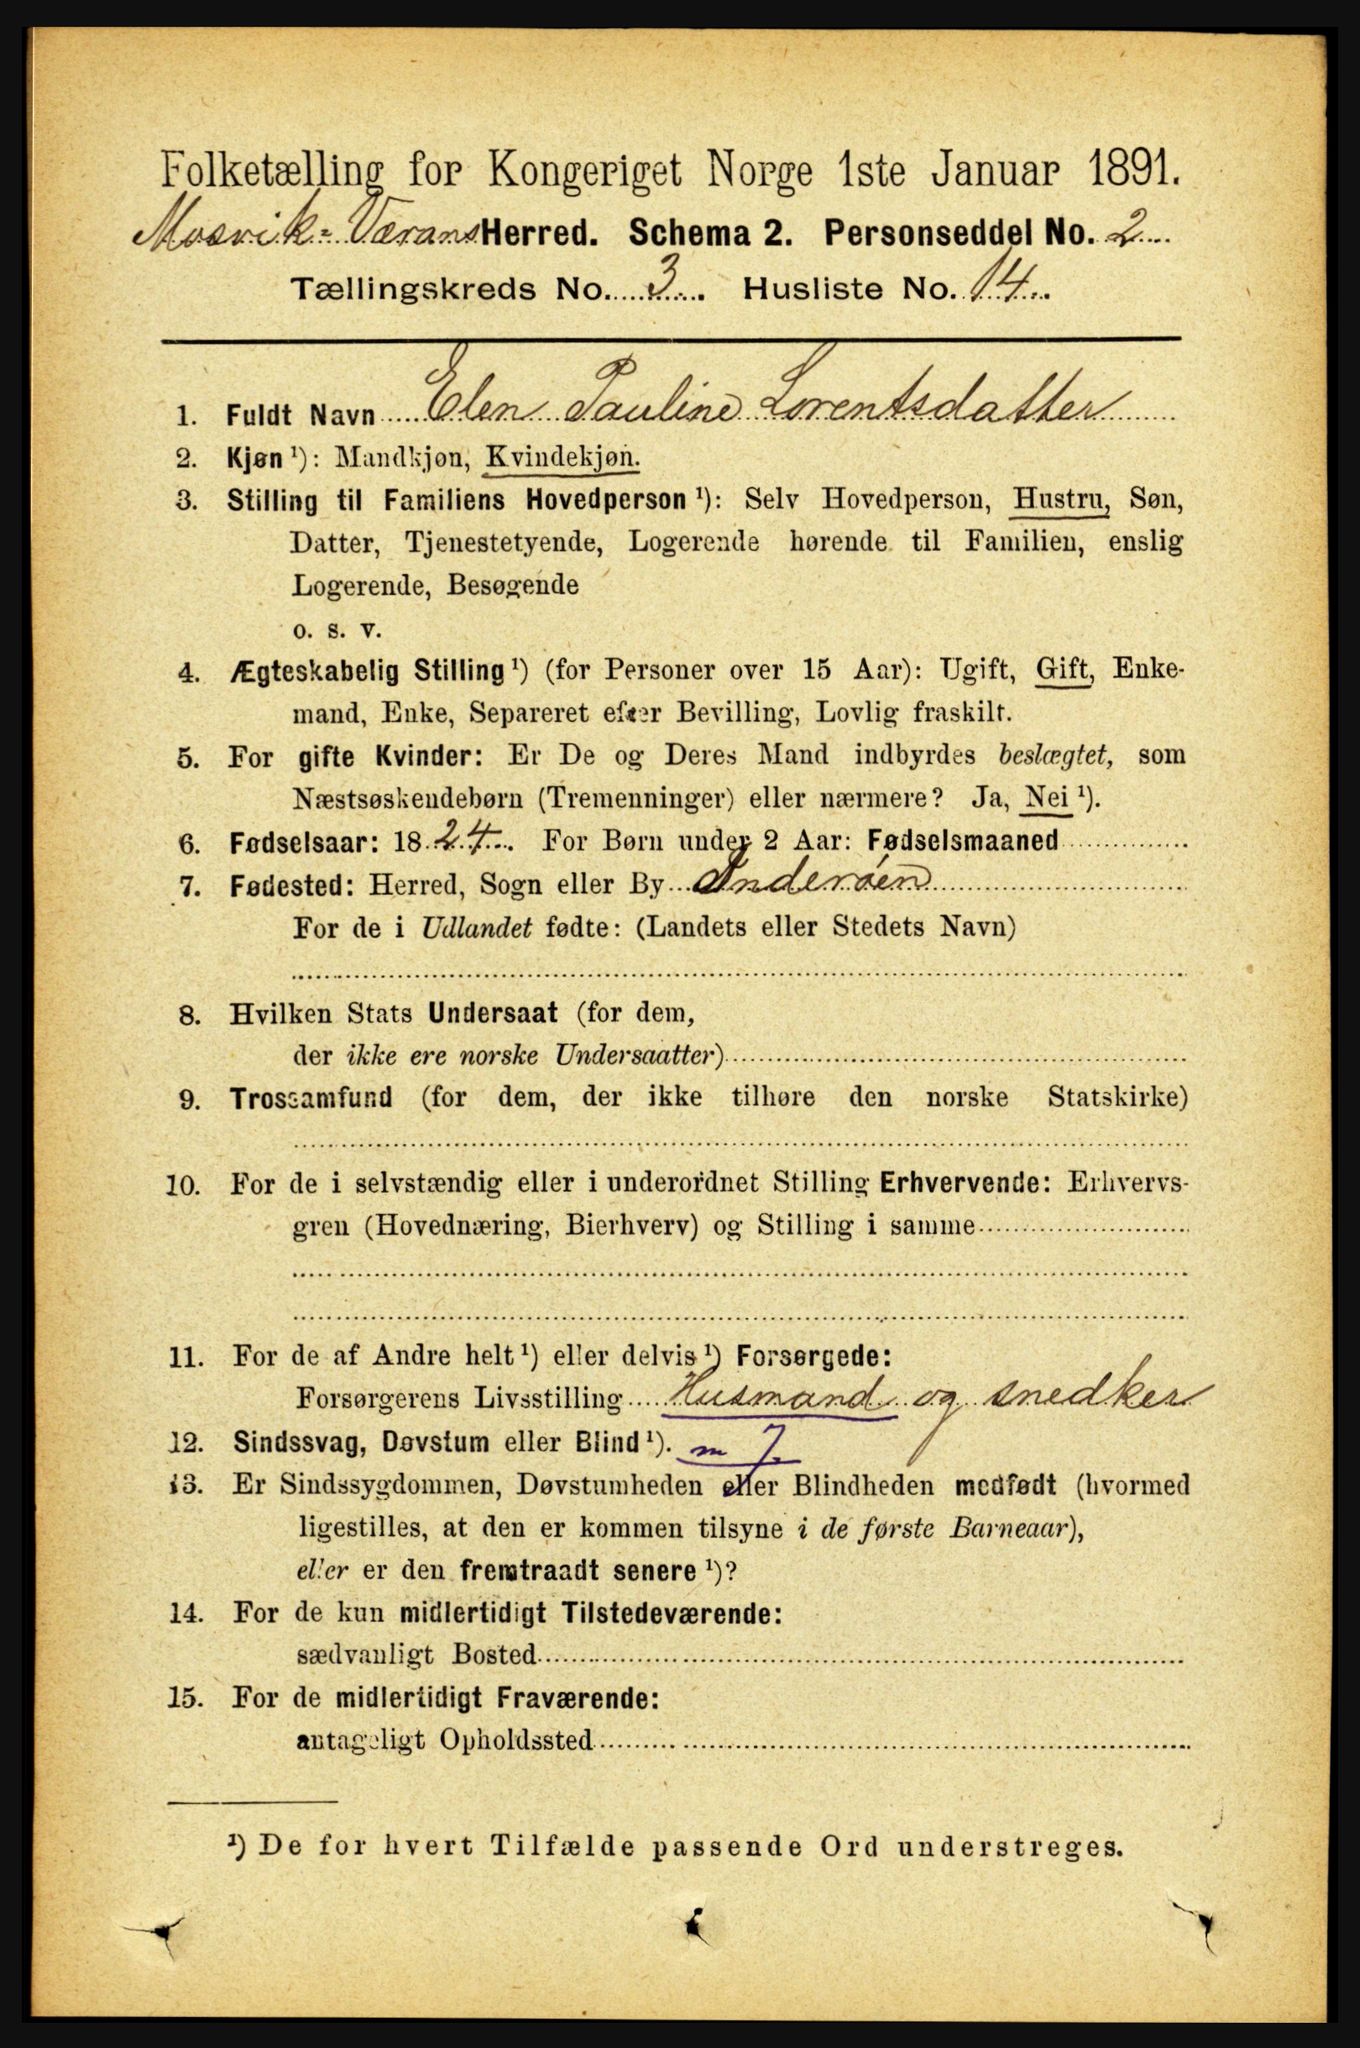 Folketælling for Kongeriget Norge 1ste Januar 1891.
Mosvik-Værans Herred. Schema 2. Personseddel No. 2
Tællingskreds No. 3. Husliste No. 14.
1. Fuldt Navn Elen Pauline Lorentsdatter
2. Kjøn ¹): Mandkjøn, Kvindekjøn.
3. Stilling til Familiens Hovedperson ¹): Selv Hovedperson, Hustru, Søn,
Datter, Tjenestetyende, Logerende hørende til Familien, enslig
Logerende, Besøgende
o. s. v.
4. Ægteskabelig Stilling ¹) (for Personer over 15 Aar): Ugift, Gift, Enke-
mand, Enke, Separeret efter Bevilling, Lovlig fraskilt.
5. For gifte Kvinder: Er De og Deres Mand indbyrdes beslægtet, som
Næstsøskendebørn (Tremenninger) eller nærmere? Ja, Nei ¹).
6. Fødselsaar: 1824. For Børn under 2 Aar: Fødselsmaaned
7. Fødested: Herred, Sogn eller By Inderøen
For de i Udlandet fødte: (Landets eller Stedets Navn)
8. Hvilken Stats Undersaat (for dem,
der ikke ere norske Undersaatter)
9. Trossamfund (for dem, der ikke tilhøre den norske Statskirke)
10. For de i selvstændig eller i underordnet Stilling Erhvervende: Erhvervs-
gren (Hovednæring, Bierhverv) og Stilling i samme
11. For de af Andre helt ¹) eller delvis ¹) Forsørgede:
Forsørgerens Livsstilling Husmand og snedker
12. Sindssvag, Døvstum eller Blind ¹). m 7.
13. Er Sindssygdommen, Døvstumheden eller Blindheden medfødt (hvormed
ligestilles, at den er kommen tilsyne i de første Barneaar),
eller er den fremtraadt senere ¹)?
14. For de kun midlertidigt Tilstedeværende:
sædvanligt Bosted
15. For de midlertidigt Fraværende:
antageligt Opholdssted
¹) De for hvert Tilfælde passende Ord understreges.